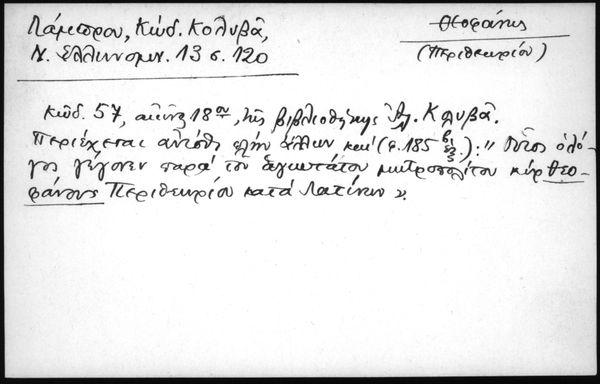 Λάμπρου, Κώδ. Κολυβᾶ,
Ν. Ἑλληνομν. 13 σ. 120
Θεοφάνης
(Περιθεωρίου)
Κῶδ. 57, αἰῶνος 18ου, τῆς βιβλιοθήκης Ἀλ. Κολυβᾶ.
Περιέχεται αὐτόθι πλὴν ἄλλων καὶ (φ. 185β ἑξ.): „ Οὗτος ὁ λό-
γος γέγονεν παρὰ τοῦ ἁγιωτάτου μητροπολίτου κὺρ Θεο-
φάνους Περιθεωρίου κατὰ Λατίνων ».